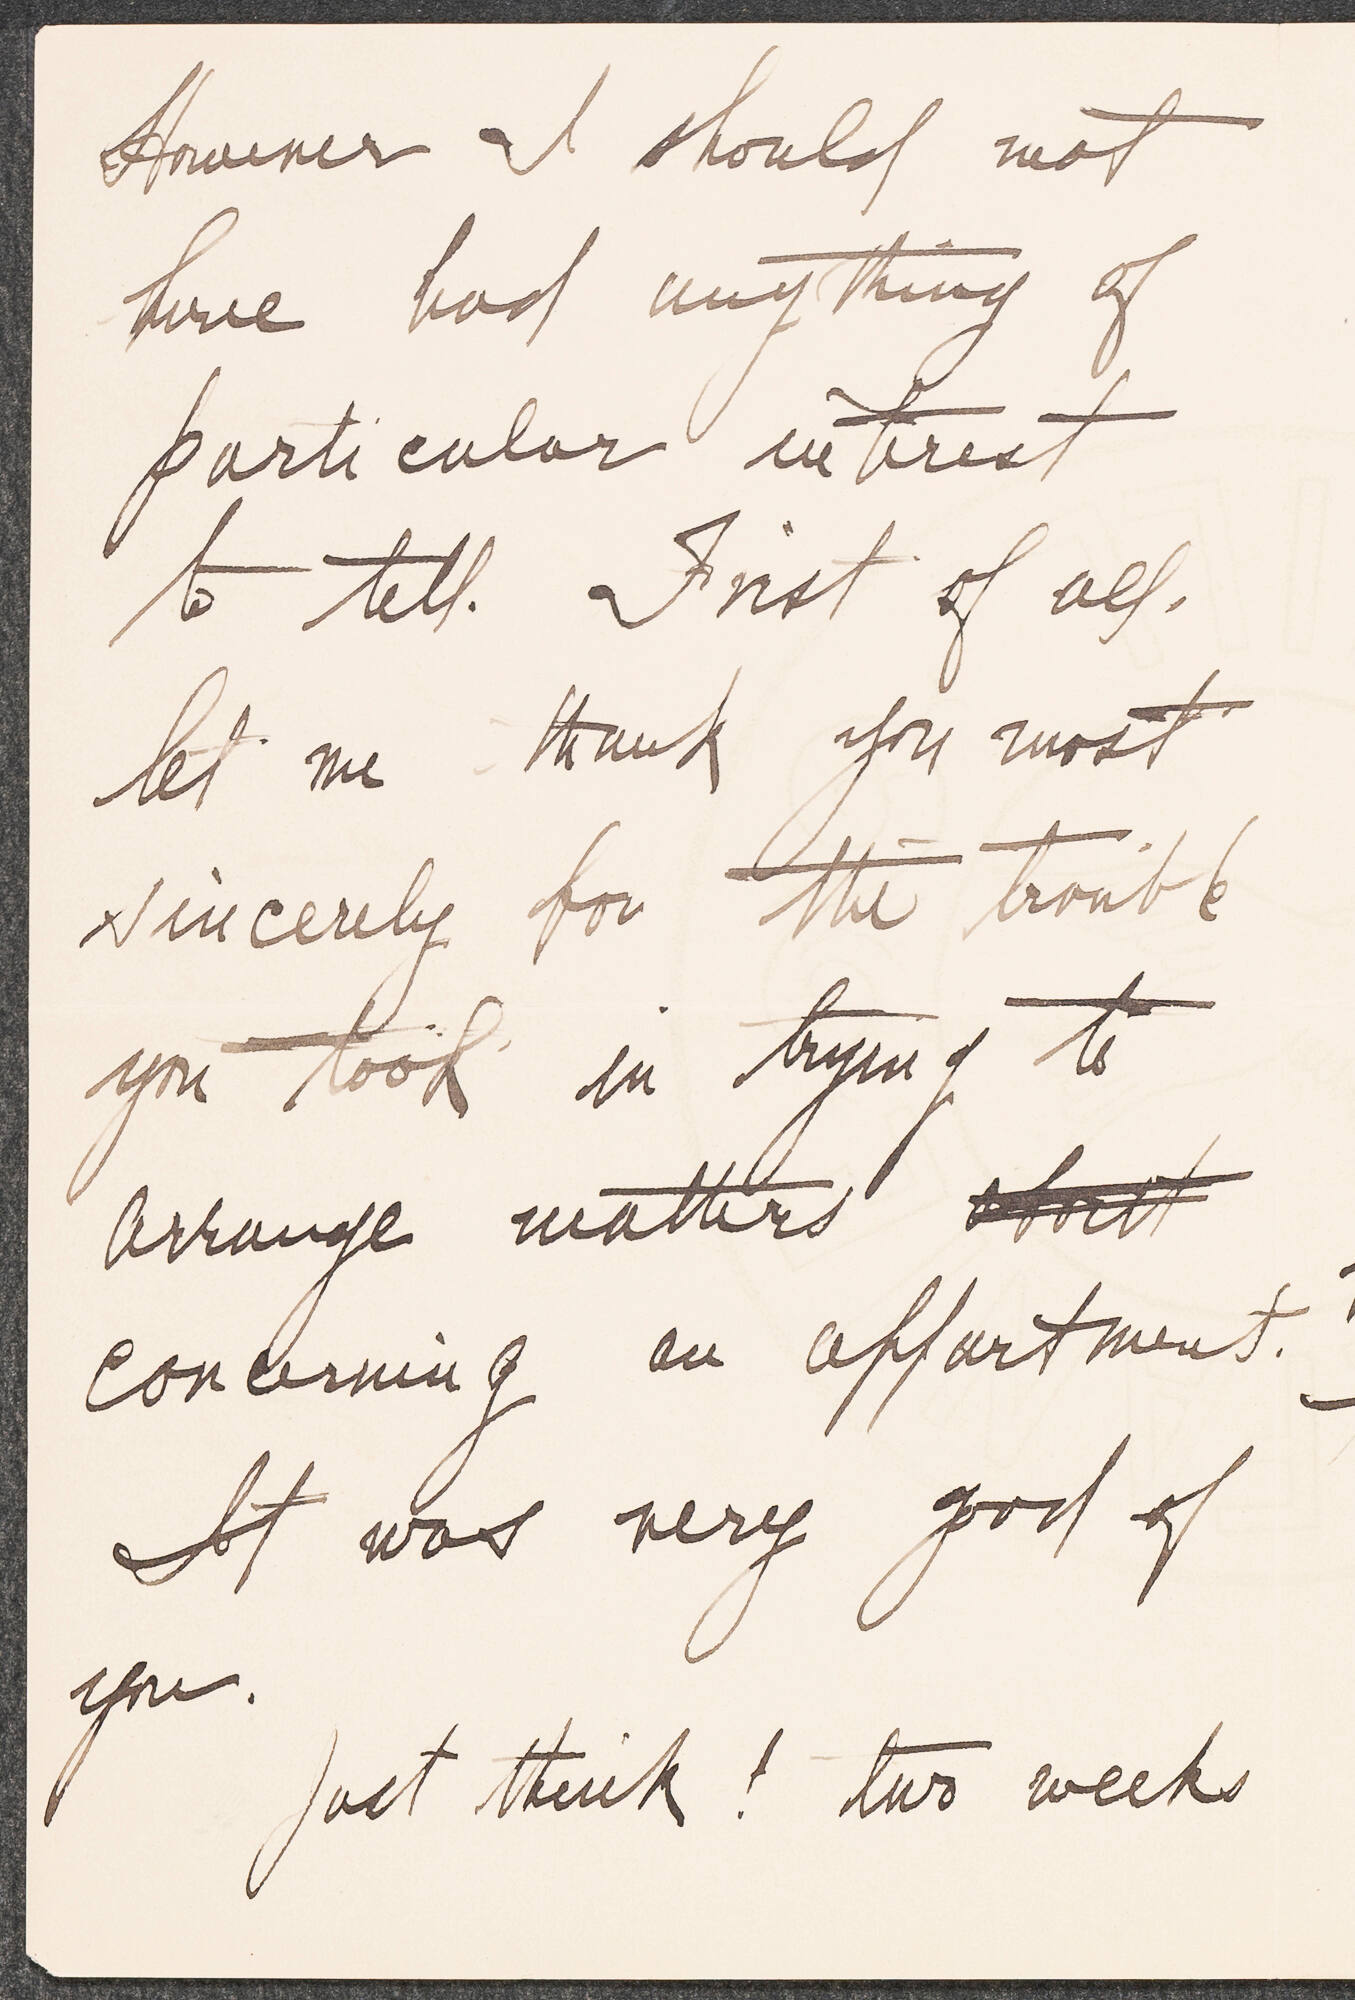 However I should not
have had anything of
particular intrest
to tell. First of all.
let me thank you most
sincerely for the trouble
you took in trying to
arrange matters
concerning an appartment.
It was very good of
you.
Just think! two weeks